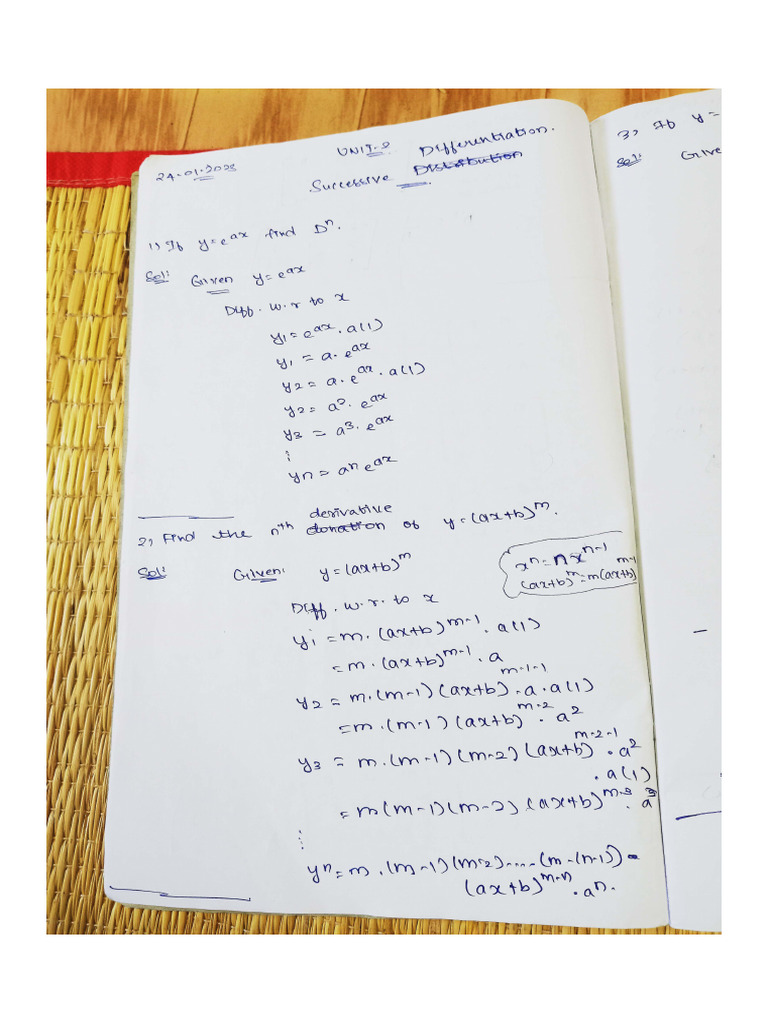 24-01-2023
UNIT-2
Successive Distribution Differentiation.
1) If y=e^ax find D^n.
Sol: Given y=e^ax
Diff. w.r to x
y1=e^ax. a(1)
y1 = a. e^ax
y2 = a. e^ax. a(1)
y2= a^2. e^ax
y3 = a^3. e^ax
⋮
yn = a^n e^ax
2, Find the n^th donation derivative of y=(ax+b)^m.
Sol: Given: y=(ax+b)^m
x^n=nx^n-1
(ax+b)^m=m(ax+b)^m-1
Diff. w.r. to x
y1 = m. (ax+b)^m-1. a(1)
= m. (ax+b)^m-1. a
y2 = m.(m-1)(ax+b)^m-1-1. a. a(1)
= m.(m-1)(ax+b)^m-2. a^2
y3 = m.(m-1)(m-2)(ax+b)^m-2-1. a^2
. a(1)
= m(m-1)(m-2).(ax+b)^m-3. a^3
⋮
y^n = m.(m-1)(m-2)....-(m-(n-1))-
(ax+b)^m-n. a^n.
3, If y=
Sol: Give